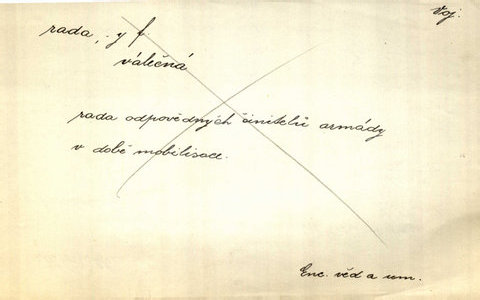 Voj.
rada, -y f.
válečná
rada odpovědných činitelů armády
v době mobilisace.
Enc. věd a um.